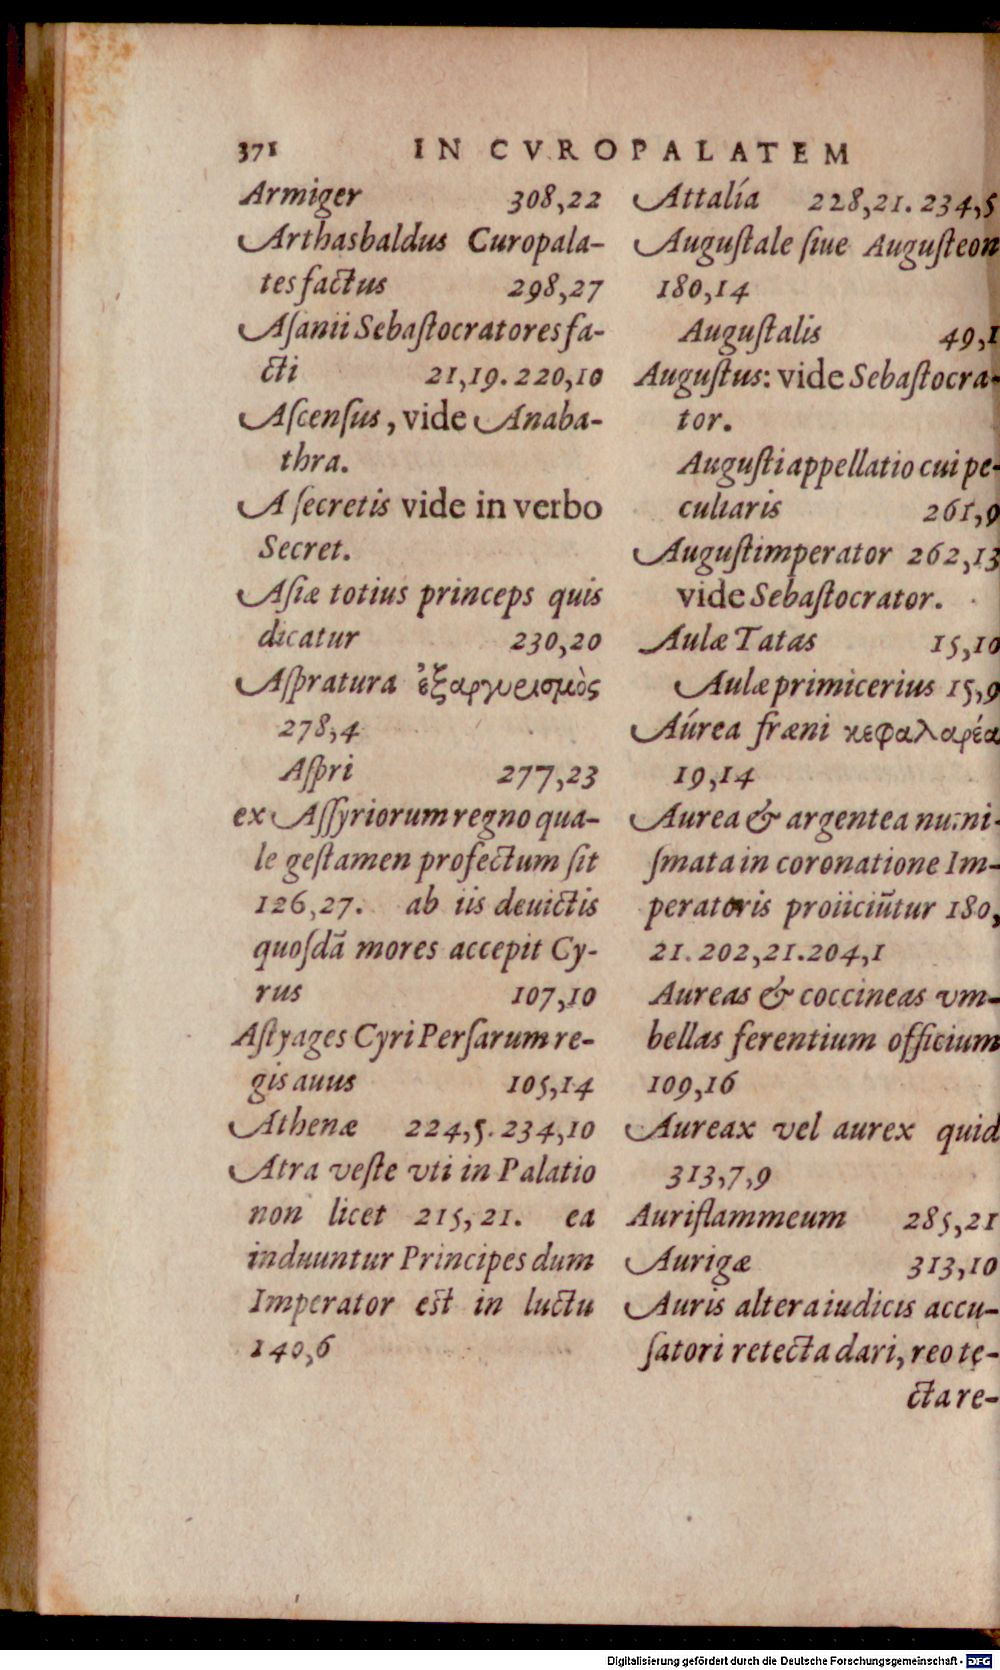 371 IN CVROPALATEM
Armiger 308,22
Arthasbaldus Curopala-
tes factus 298,27
Aſanii Sebaſtocratores fa-
cti 21,19. 220,10
Aſcenſus, vide Anaba-
thra.
A ſecretis vide in verbo
Secret.
Aſiæ totius princeps quis
dicatur 230,20
Aſpratura ἐξαργυρισμὸς
278,4
Aſpri 277,23
ex Aſſyriorum regno qua-
le geſtamen profectum ſit
126,27. ab iis deuictis
quoſdã mores accepit Cy-
rus 107,10
Aſtyages Cyri Perſarum re-
gis auus 105,14
Athenæ 224,5. 234,10
Atra veſte vti in Palatio
non licet 215,21. ea
induuntur Principes dum
Imperator eſt in luctu
140,6
Attalía 228,21. 234,5
Auguſtale ſiue Auguſteon
180,14
Auguſtalis 49,1
Auguſtus: vide Sebaſtocra-
tor.
Auguſti appellatio cui pe-
culiaris 261,9
Auguſtimperator 262,13
vide Sebaſtocrator.
Aulæ Tatas 15,10
Aulæ primicerius 15,9
Aúrea fræni κεφαλαρέα
19,14
Aurea & argentea numi-
ſmata in coronatione Im-
peratoris proiiciũtur 180,
21. 202,21. 204,1
Aureas & coccineas vm-
bellas ferentium officium
109,16
Aureax vel aurex quid
313,7,9
Auriflammeum 285,21
Aurigæ 313,10
Auris altera iudicis accu-
ſatori retecta dari, reo te-
cta re-
Digitalisierung gefördert durch die Deutsche Forschungsgemeinschaft - DFG